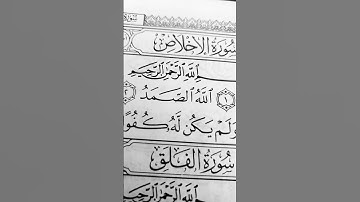 سُورَةُ الإِخْلَاصِ
ٱللَّهِ ٱلرَّحْمَٰنِ ٱلرَّحِيمِ
١ ٱللَّهُ ٱلصَّمَدُ ٢
وَلَمْ يَكُن لَّهُۥ كُفُوًا
سُورَةُ الفَلَقِ
ٱللَّهِ ٱلرَّحْمَٰنِ ٱلرَّحِيمِ